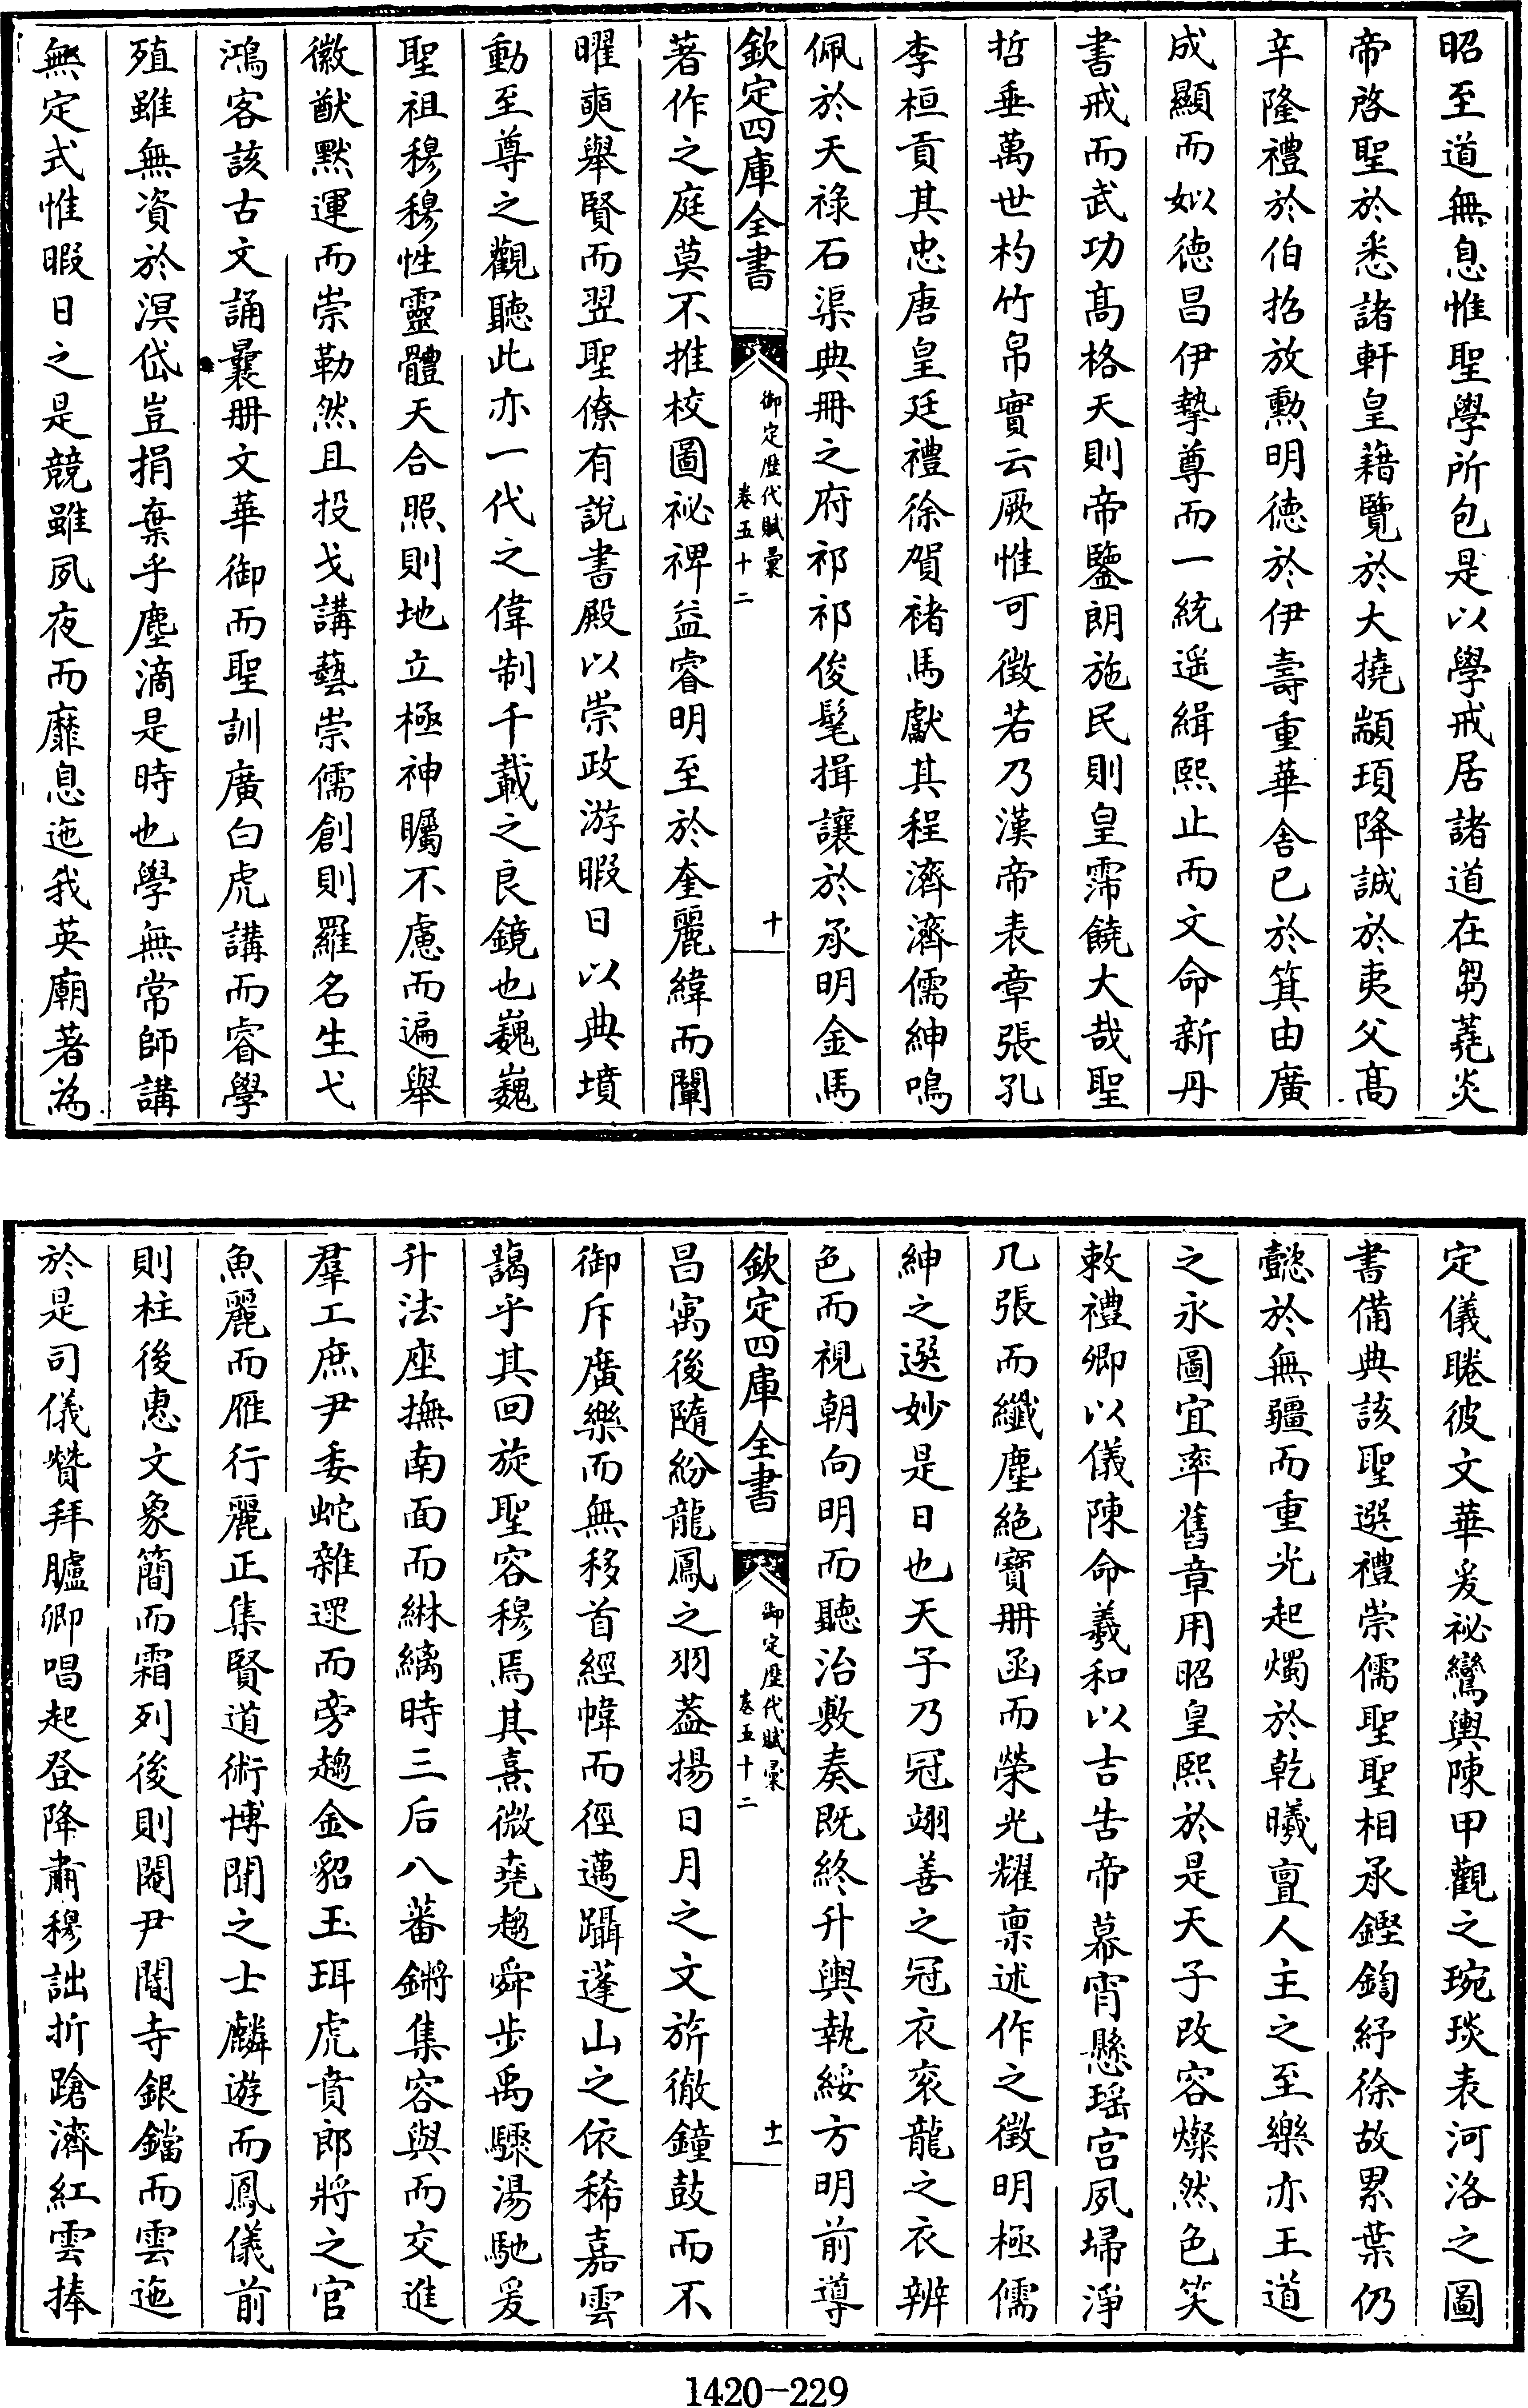 昭至道無息惟聖學所包是以學戒居諸道在芻蕘炎
帝啓聖於悉諸軒皇藉覽於大撓顓頊降誠於夷父髙
辛隆禮於伯招放勲明徳於伊壽重華舎已於箕由廣
成顯而姒徳昌伊摯尊而一統遥緝熙止而文命新丹
書戒而武功髙格天則帝鑒朗施民則皇霈饒大哉聖
哲垂萬世杓竹帛實云厥惟可徴若乃漢帝表章張孔
李桓貢其忠唐皇廷禮徐賀褚馬獻其程濟濟儒紳鳴
佩於天祿石渠典冊之府祁祁俊髦揖讓於承明金馬
欽定四庫全書
御定歴代賦彚
卷五十二
十
著作之庭莫不推校圖祕禆益睿明至於奎麗緯而闡
曜奭舉賢而翌聖僚有説書殿以崇政游暇日以典墳
動至尊之觀聽此亦一代之偉制千載之良鏡也巍巍
聖祖穆穆性靈體天合照則地立極神矚不慮而遍舉
徽猷黙運而崇勒然且投戈講藝崇儒創則羅名生弋
鴻客該古文誦曩冊文華御而聖訓廣白虎講而睿學
殖雖無資於溟岱豈捐棄乎塵滴是時也學無常師講
無定式惟暇日之是競雖夙夜而靡息迤我英廟著為
定儀睠彼文華爰祕鸞輿陳甲觀之琬琰表河洛之圖
書備典該聖選禮崇儒聖聖相承鏗鍧紓徐故累葉仍
懿於無疆而重光起燭於乾曦亶人主之至樂亦王道
之永圖宜率舊章用昭皇熙於是天子改容燦然色笑
敕禮卿以儀陳命羲和以吉告帝幕宵懸瑶宫夙埽淨
几張而纖塵絶寶冊函而榮光耀禀述作之徴明極儒
紳之選妙是日也天子乃冠翊善之冠衣衮龍之衣辨
色而視朝向明而聽治敷奏既終升輿執綏方明前導
欽定四庫全書
御定歴代賦彚
卷五十二
十一
昌㝢後隨紛龍鳳之羽葢揚日月之文旂徹鐘鼓而不
御斥廣樂而無移首經幃而徑邁躡蓬山之依稀嘉雲
藹乎其回旋聖容穆焉其熹微堯趨舜步禹驟湯馳爰
升法座撫南面而綝纚時三后八蕃鏘集容與而交進
羣工庶尹委蛇雜遝而旁趨金貂玉珥虎賁郎將之官
魚麗而雁行麗正集賢道術博聞之士麟遊而鳳儀前
則柱後惠文象簡而霜列後則閹尹閽寺銀鐺而雲迤
於是司儀贊拜臚卿唱起登降肅穆詘折蹌濟紅雲捧
1420-229